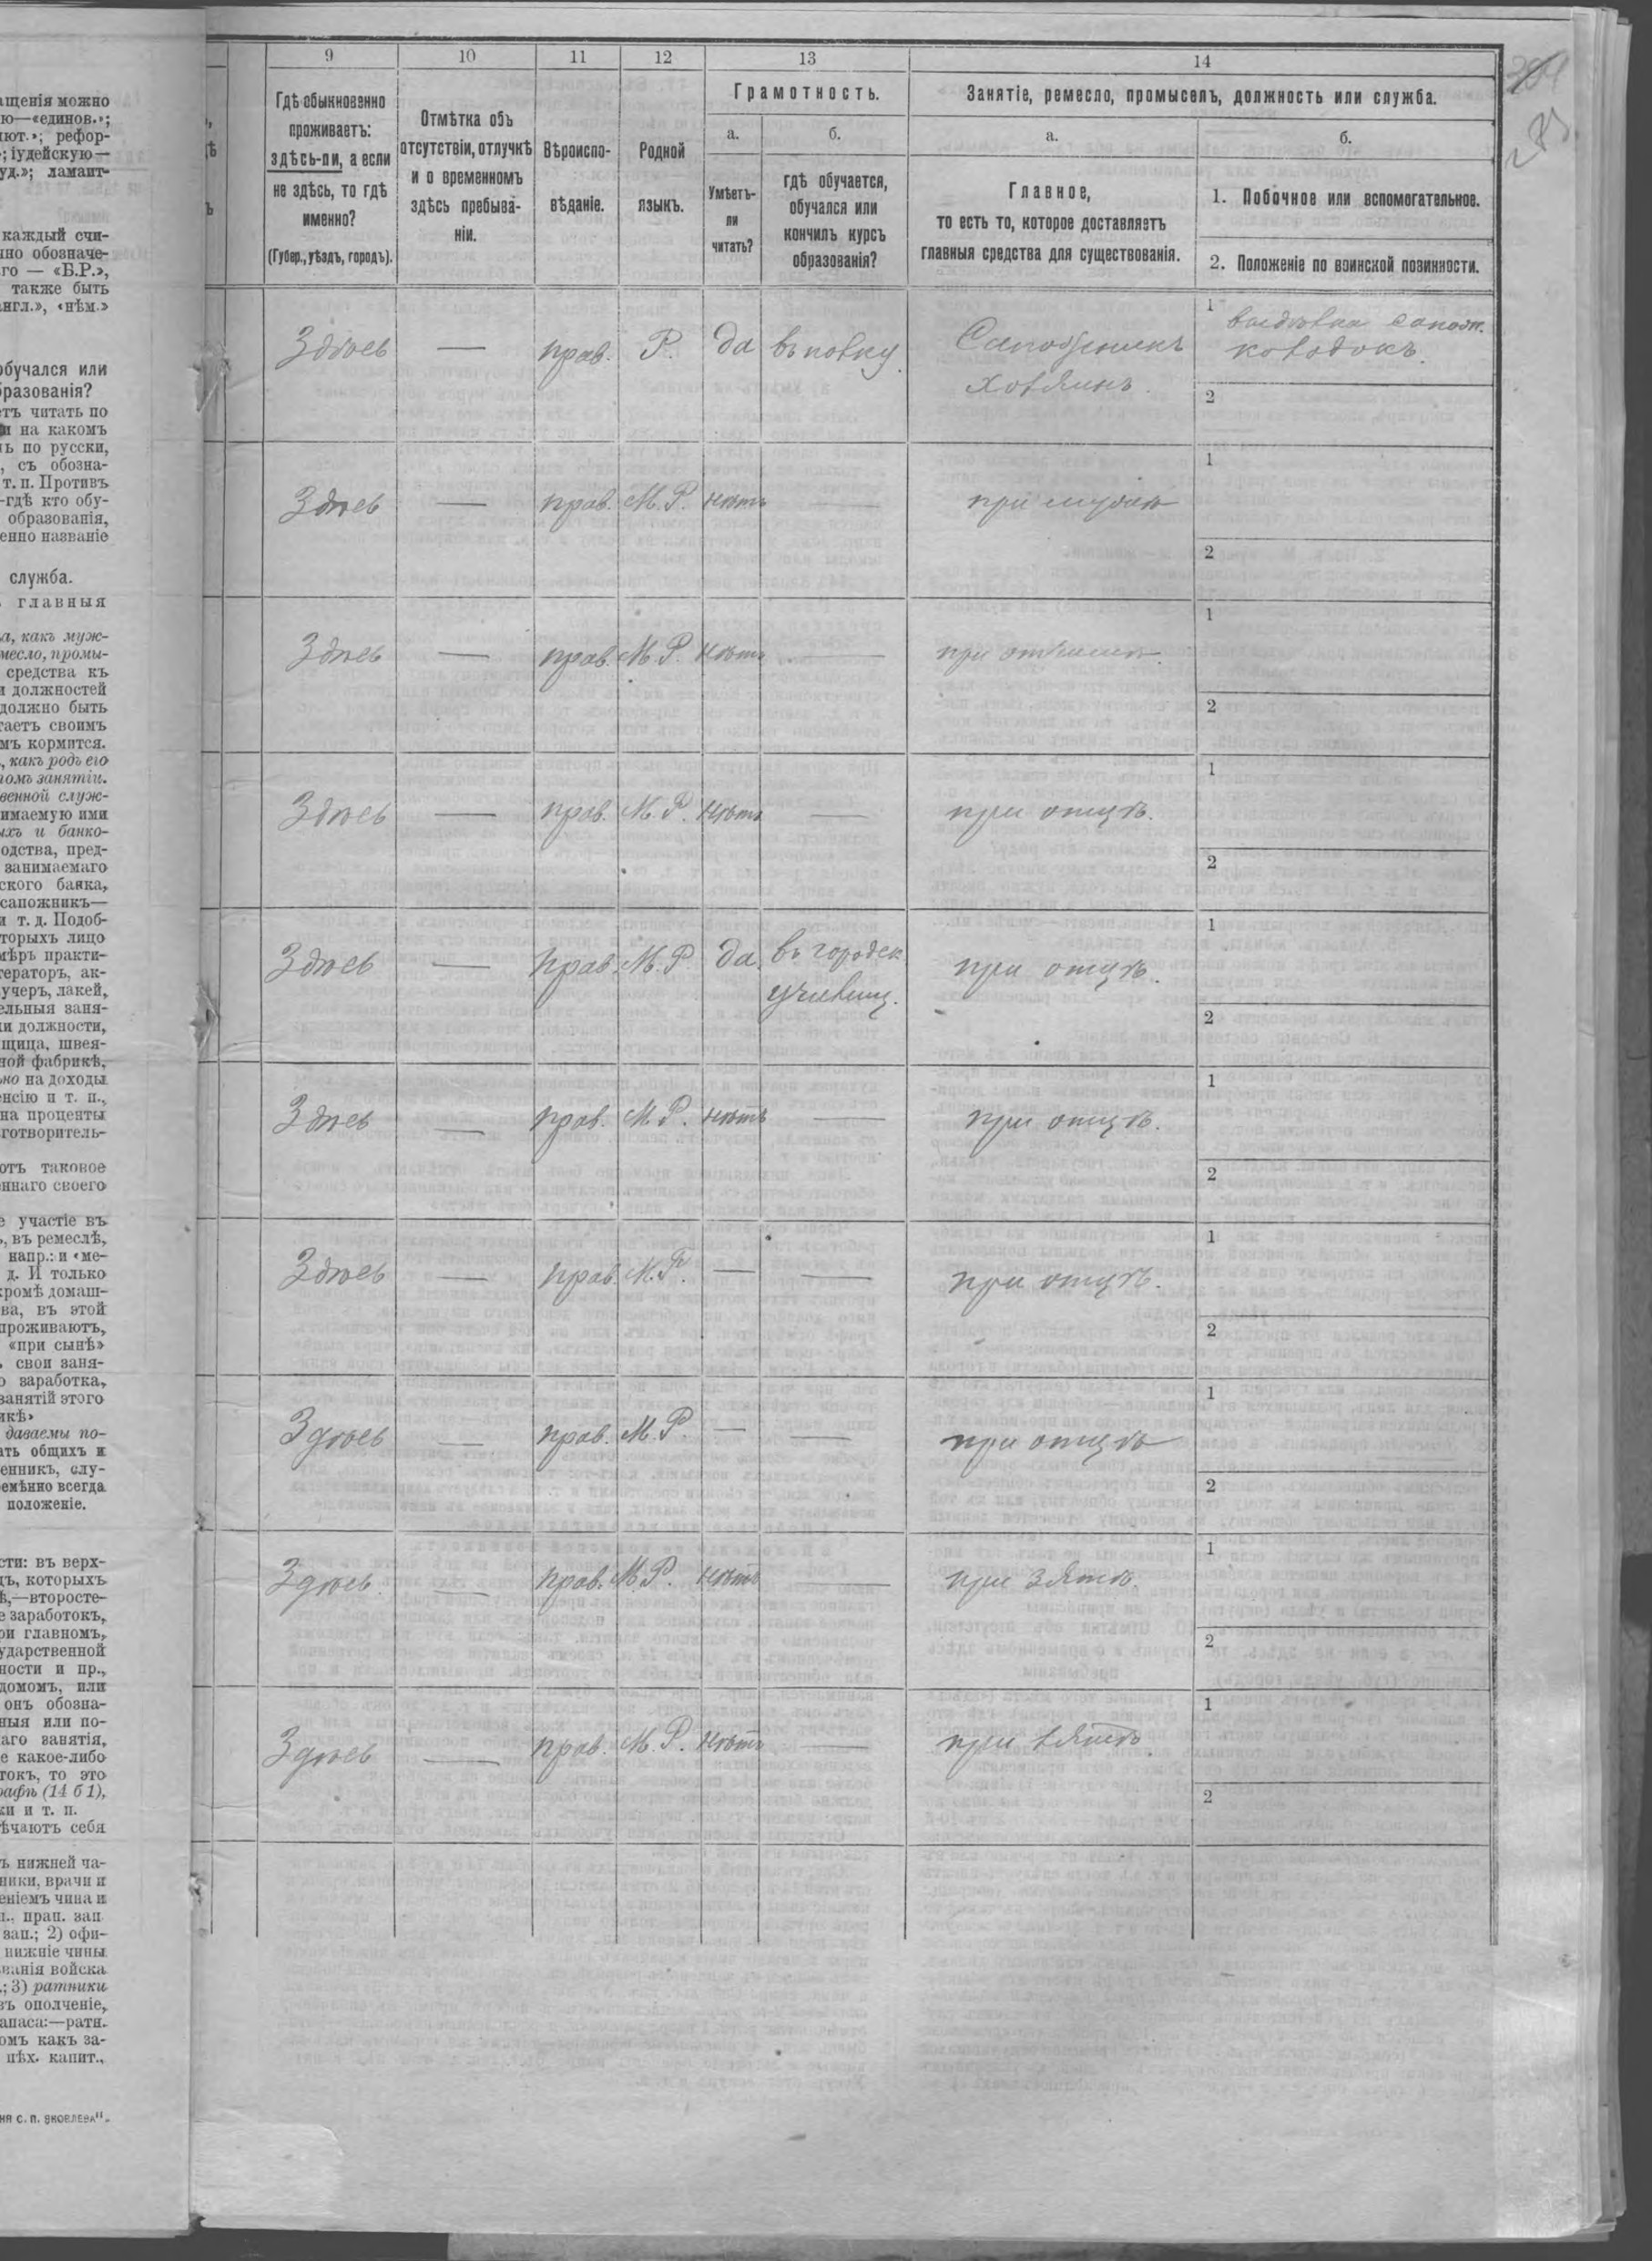 ащенія можно
ю—«единов.»;
ют.»; рефор-
»; іудейскую—
уд.»; ламаит-
каждый счи-
но обозначе-
го — «Б.Р.»,
также быть
нгл.», «нѣм.»
обучался или
бразованія?
етъ читать по
и на какомъ
ь по русски,
, съ обозна-
т. п. Противъ
-гдѣ кто обу-
образованія,
енно названіе
служба.
главныя
а, какъ муж-
месло, промы-
средства къ
и должностей
должно быть
гаетъ своимъ
мъ кормится.
, какъ родъ его
томъ занятіи.
венной служ-
имаемую ими
ыхъ и банко-
одства, пред-
занимаемаго
ского банка,
сапожникъ—
и т. д. Подоб-
торыхъ лицо
мѣръ практи-
тераторъ, ак-
учеръ, лакей,
ельныя заня-
и должности,
щица, швея-
ной фабрикѣ,
но на доходы
енсію и т. п.,
на проценты
готворитель-
отъ таковое
ннаго своего
е участіе въ
, въ ремеслѣ,
напр.: и «ме-
д. И только
кромѣ домаш-
ва, въ этой
проживаютъ,
«при сынѣ»
свои заня-
о заработка,
занятій этого
икѣ»
даваемы по-
ать общихъ и
енникъ, слу-
емѣнно всегда
положеніе.
сти: въ верх-
дъ, которыхъ
ѣ,—второсте-
е заработокъ,
ри главномъ,
ударственной
ности и пр.,
домомъ, или
онъ обозна-
ныя или по-
аго занятія,
е какое-либо
токъ, то это
рафѣ (14 б 1),
ки и т. п.
ѣчаютъ себя
ъ нижней ча-
ники, врачи и
еніемъ чина и
п., прап. зап
зап.; 2) офи-
нижніе чины
ванія войска
.; 3) ратники
въ ополченіе,
апаса:—ратн.
омъ какъ за-
пѣх. капит.,
НЯ С. П. ЯКОВЛЕВА".
9 10 11 12 13 14
Гдѣ обыкновенно
проживаетъ:
здѣсь-ли, а если
не здѣсь, то гдѣ
именно?
(Губер., уѣздъ, городъ).
Отмѣтка объ
отсутствіи, отлучкѣ
и о временномъ
здѣсь пребыва-
ніи.
Вѣроиспо-
вѣданіе.
Родной
языкъ.
Грамотность.
а.
Умѣетъ-
ли
читать?
б.
гдѣ обучается,
обучался или
кончилъ курсъ
образованія?
Занятіе, ремесло, промыселъ, должность или служба.
а.
Главное,
то есть то, которое доставляетъ
главныя средства для существованія.
б.
1. Побочное или вспомогательное.
2. Положеніе по воинской повинности.
Здѣсь — прав. Р. да въ полку. Сапожникъ
хозяинъ.
1 выдѣлка сапож.
колодокъ.
2
Здѣсь — прав. М. Р. нѣтъ — при мужѣ
1
2
Здѣсь — прав. М. Р. нѣтъ —
1
2
Здѣсь — прав. М. Р. нѣтъ — при отцѣ.
1
2
Здѣсь — прав. М. Р. да. въ городск.
училищ. при отцѣ.
1
2
Здѣсь — прав. М. Р. нѣтъ — при отцѣ.
1
2
Здѣсь — прав. М. Р. — — при отцѣ.
1
2
Здѣсь — прав. М. Р. — — при отцѣ
1
2
Здѣсь. — прав. М. Р. нѣтъ — при зятѣ.
1
2
Здѣсь — прав. М. Р. нѣтъ — при зятѣ.
1
2